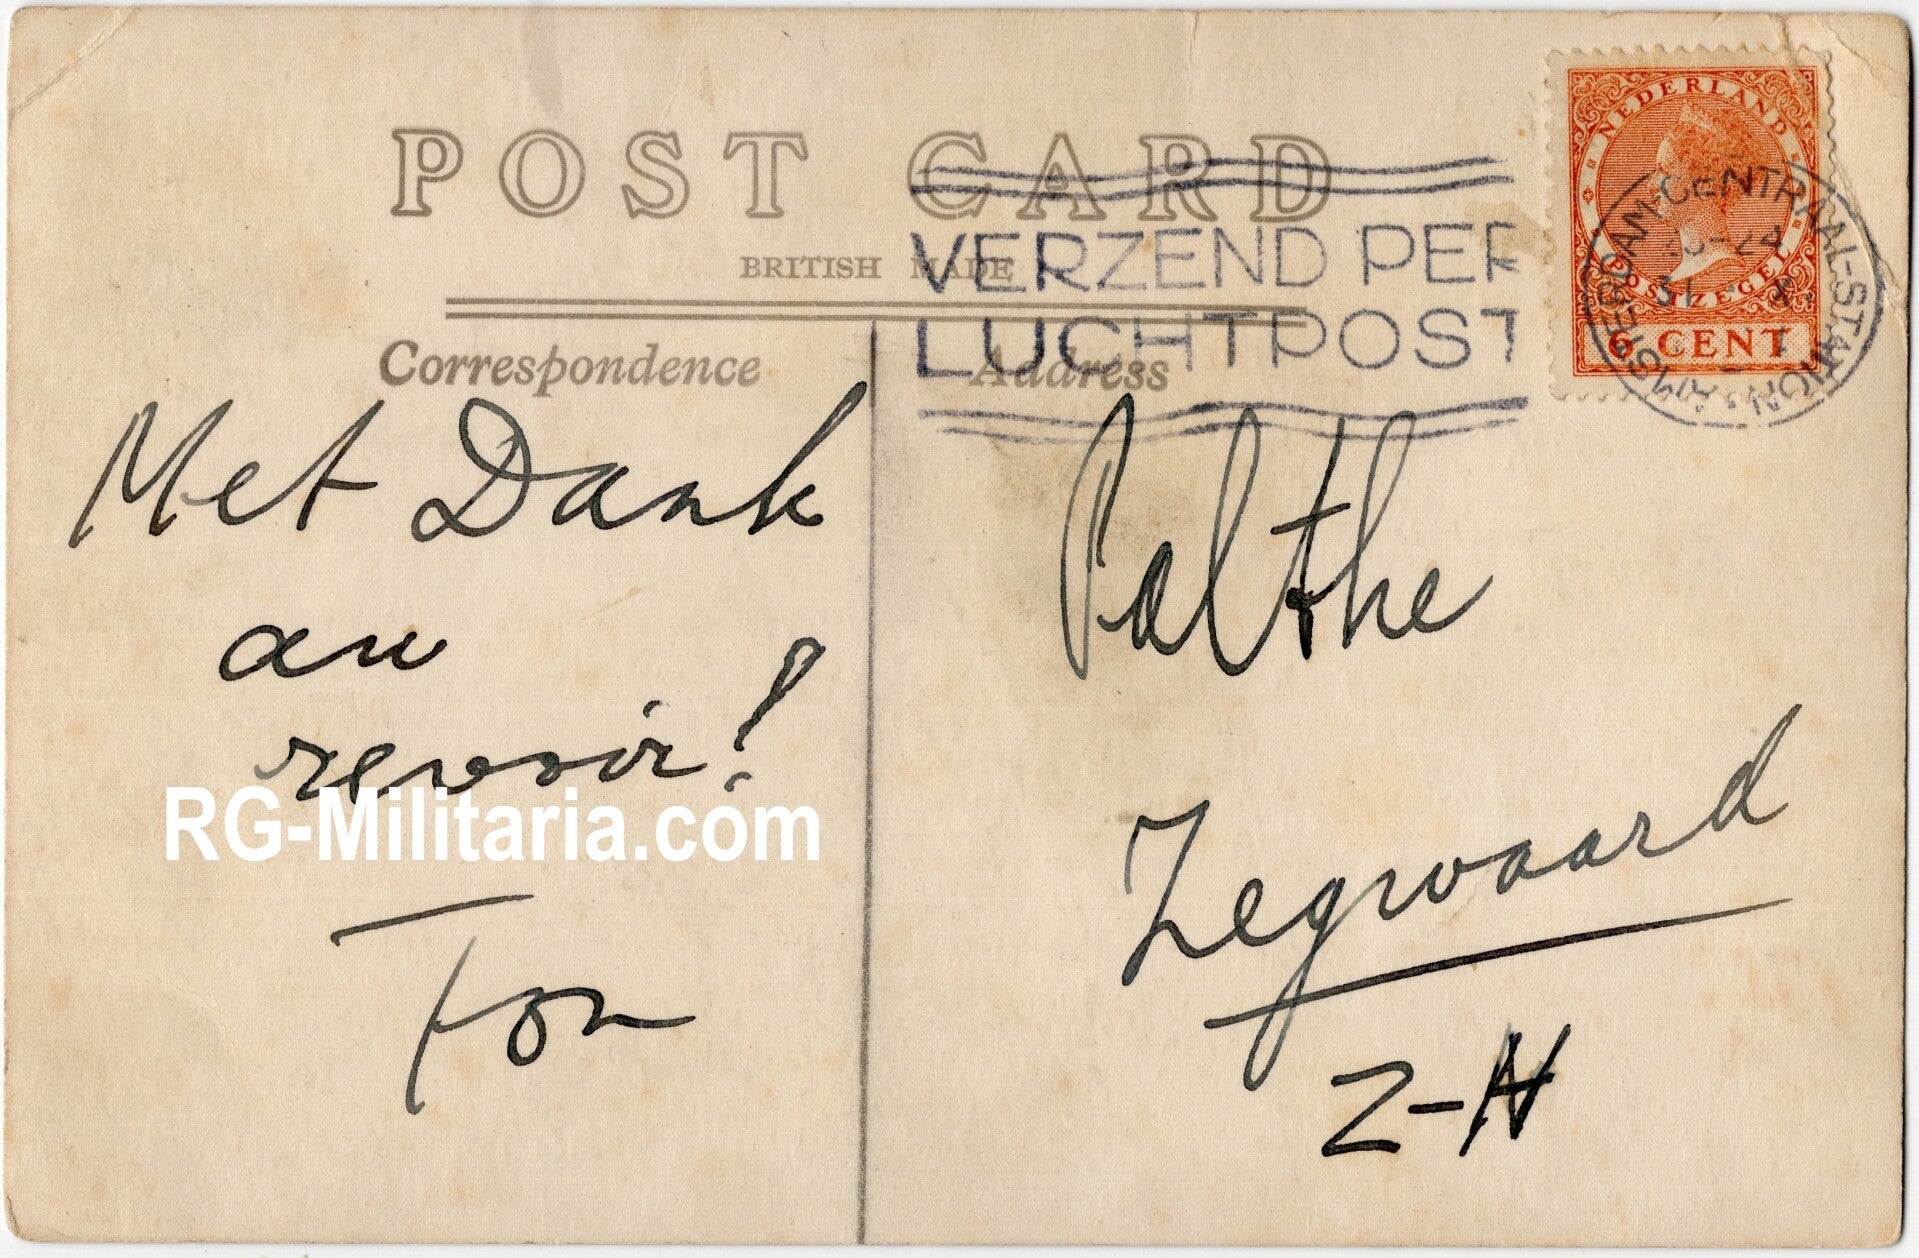 POST CARD
BRITISH MADE
VERZEND PER
LUCHTPOST
NEDERLAND
POSTZEGEL
6 CENT
AMSTERDAM-CENTRAAL-STATION
31 X
Correspondence
Address
Met Dank
au
revoir!
Ton
Palthe
Zegwaard
Z-H
RG-Militaria.com